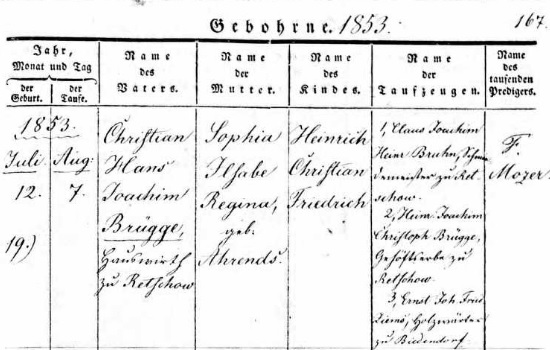 Gebohrne. 1853. 167.
Jahr, Monat und Tag
der Geburt. der Taufe.
Name des Vaters.
Name der Mutter.
Name des Kindes.
Name der Taufzeugen.
Name des taufenden Predigers.
1853.
Juli Aug:
12. 7.
19.)
Christian
Hans
Joachim
Brügge,
Hauswirth
zu Retschow
Sophia
Ilsabe
Regina,
geb.
Ahrends.
Heinrich
Christian
Friedrich
1, Claus Joachim
Heinr Bruhn,
zu Ret-
schow.
2, Heinr. Joachim
Christoph Brügge,
Gehöftserbe zu
Retschow
3, Ernst Joh. Fried
Ziems, Holzwärter
zu
F.
Mozer.